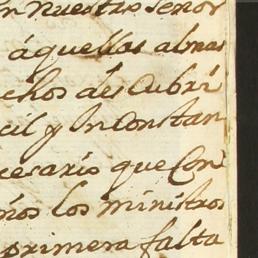 en nuestro señor
aquellas almas
chos descubri
cil y Inconstan
cesario que Con
ños los ministros
primera falta